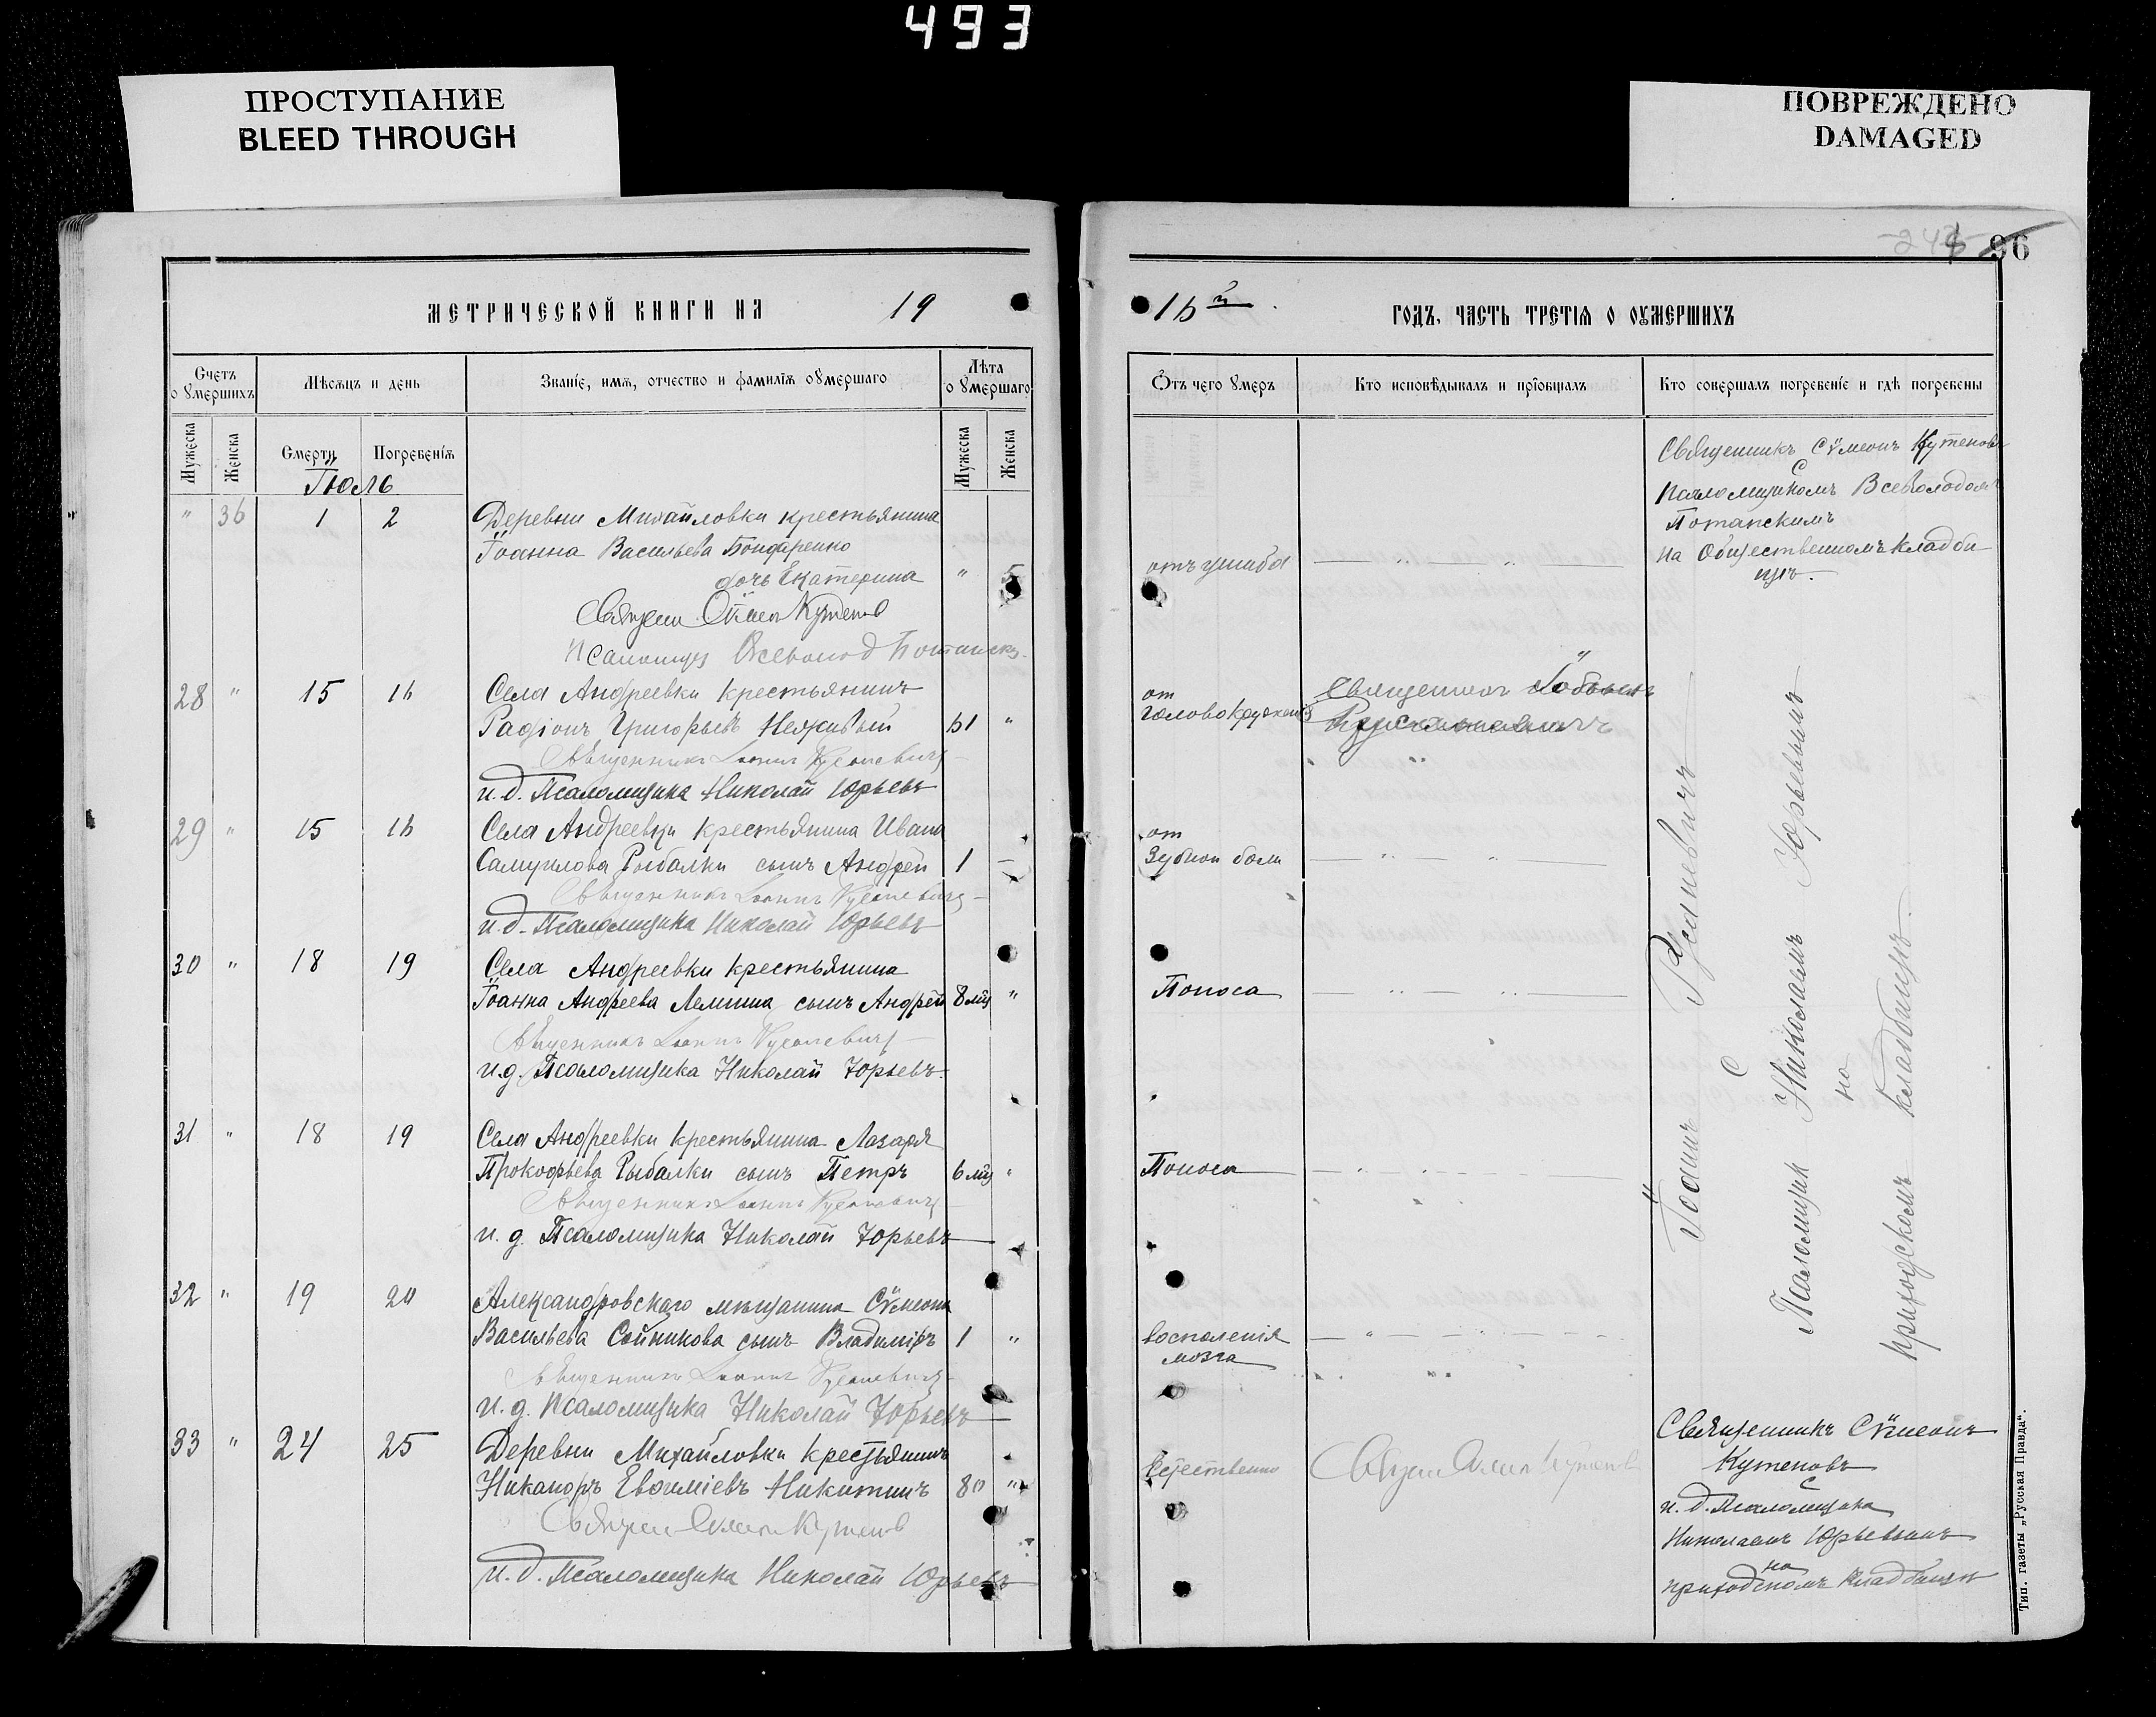 493
ПРОСТУПАНИЕ
BLEED THROUGH
ПОВРЕЖДЕНО
DAMAGED
96
МЕТРИЧЕСКОЙ КНИГИ НА 19
16й
ГОДЪ, ЧАСТЬ ТРЕТІѦ О ОУМЕРШИХЪ
Счетъ о умершихъ
Мѣсѧцъ и день
Званіе, имѧ, отчество и фамилїѧ оумершаго
Лѣта оумершаго
Мужеска
Женска
Смерти
Погребенїѧ
Мужеска
Женска
Ѿтъ чего умеръ
Кто исповѣдывалъ и прїобщалъ
Кто совершалъ погребенїе и гдѣ погребены
Іюль
" 36 1 2 Деревни Михайловки крестьянина
Іоанна Васильева Бондаренко
дочь Екатерина " 5
отъ ушиба
Священникъ Сѵмеонъ Кутеповъ
с
Псаломщикомъ Всеволодомъ
Потапскимъ
на Общественномъ кладби-
щѣ.
28 " 15 16 Села Андреевки крестьянинъ
Радіонъ Григорьевъ Неживый 61 "
от
головокруженія
Священникъ Іоаннъ
Священникъ Іоаннъ Русаневичъ
и.д. Псаломщика Николай Юрьевъ
29 " 15 16 Села Андреевки крестьянина Ивана
Самуилова Рыбалки сынъ Андрей 1 —
от
Зубной боли
Священникъ Іоаннъ Русаневичъ
и.д. Псаломщика Николай Юрьевъ
30 " 18 19 Села Андреевки крестьянина
Іоанна Андреева Лемиша сынъ Андрей 8 мц "
Поноса
Священникъ Іоаннъ Русаневичъ
и.д. Псаломщика Николай Юрьевъ
31 " 18 19 Села Андреевки крестьянина Лазаря
Прокофьева Рыбалки сынъ Петръ 6 мц "
Поноса
Священникъ Іоаннъ Русаневичъ
и.д. Псаломщика Николай Юрьевъ
32 " 19 20 Александровскаго мѣщанина Сѵмеона
Васильева Сойникова сынъ Владиміръ 1 "
воспаленія
мозга
Священникъ Іоаннъ Русаневичъ
и.д. Псаломщика Николай Юрьевъ
Іоаннъ Русаневичъ
с
Псаломщик Николаемъ Юрьевымъ
на
приходскомъ кладбищѣ.
33 " 24 25 Деревни Михайловки крестьянинъ
Никаноръ Евѳиміевъ Никитинъ 80 "
Естественно
и.д. Псаломщика Николай Юрьевъ
Священникъ Сѵмеонъ
Кутеповъ
с
и.д. Псаломщика
Николаемъ Юрьевымъ
на
приходскомъ кладбищѣ
Тип. газеты „Русская Правда“.